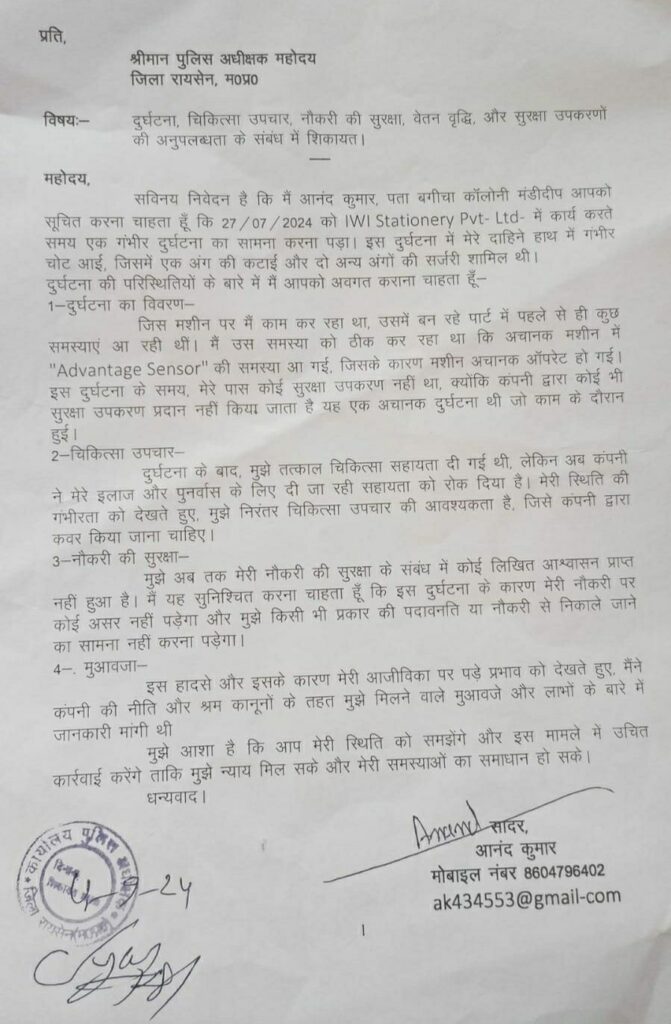 प्रति,
श्रीमान पुलिस अधीक्षक महोदय
जिला रायसेन, म०प्र०
विषयः– दुर्घटना, चिकित्सा उपचार, नौकरी की सुरक्षा, वेतन वृद्धि, और सुरक्षा उपकरणों
की अनुपलब्धता के संबंध में शिकायत।
महोदय,
सविनय निवेदन है कि मैं आनंद कुमार, पता बगीचा कॉलोनी मंडीदीप आपको
सूचित करना चाहता हूँ कि 27/07/2024 को IWI Stationery Pvt- Ltd- में कार्य करते
समय एक गंभीर दुर्घटना का सामना करना पड़ा। इस दुर्घटना में मेरे दाहिने हाथ में गंभीर
चोट आई, जिसमें एक अंग की कटाई और दो अन्य अंगों की सर्जरी शामिल थी।
दुर्घटना की परिस्थितियों के बारे में मैं आपको अवगत कराना चाहता हूँ–
1–दुर्घटना का विवरण–
जिस मशीन पर मैं काम कर रहा था, उसमें बन रहे पार्ट में पहले से ही कुछ
समस्याएं आ रही थीं। मैं उस समस्या को ठीक कर रहा था कि अचानक मशीन में
"Advantage Sensor" की समस्या आ गई, जिसके कारण मशीन अचानक ऑपरेट हो गई।
इस दुर्घटना के समय, मेरे पास कोई सुरक्षा उपकरण नहीं था, क्योंकि कंपनी द्वारा कोई भी
सुरक्षा उपकरण प्रदान नहीं किया जाता है यह एक अचानक दुर्घटना थी जो काम के दौरान
हुई।
2–चिकित्सा उपचार–
दुर्घटना के बाद, मुझे तत्काल चिकित्सा सहायता दी गई थी, लेकिन अब कंपनी
ने मेरे इलाज और पुनर्वास के लिए दी जा रही सहायता को रोक दिया है। मेरी स्थिति की
गंभीरता को देखते हुए, मुझे निरंतर चिकित्सा उपचार की आवश्यकता है, जिसे कंपनी द्वारा
कवर किया जाना चाहिए।
3–नौकरी की सुरक्षा–
मुझे अब तक मेरी नौकरी की सुरक्षा के संबंध में कोई लिखित आश्वासन प्राप्त
नहीं हुआ है। मैं यह सुनिश्चित करना चाहता हूँ कि इस दुर्घटना के कारण मेरी नौकरी पर
कोई असर नहीं पड़ेगा और मुझे किसी भी प्रकार की पदावनति या नौकरी से निकाले जाने
का सामना नहीं करना पड़ेगा।
4–. मुआवजा–
इस हादसे और इसके कारण मेरी आजीविका पर पड़े प्रभाव को देखते हुए, मैंने
कंपनी की नीति और श्रम कानूनों के तहत मुझे मिलने वाले मुआवजे और लाभों के बारे में
जानकारी मांगी थी
मुझे आशा है कि आप मेरी स्थिति को समझेंगे और इस मामले में उचित
कार्रवाई करेंगे ताकि मुझे न्याय मिल सके और मेरी समस्याओं का समाधान हो सके।
धन्यवाद।
Anand सादर,
आनंद कुमार
मोबाइल नंबर 8604796402
ak434553@gmail-com
कार्यालय पुलिस अधीक्षक
जिला रायसेन (म.प्र.)
दिनांक
-9-24
1